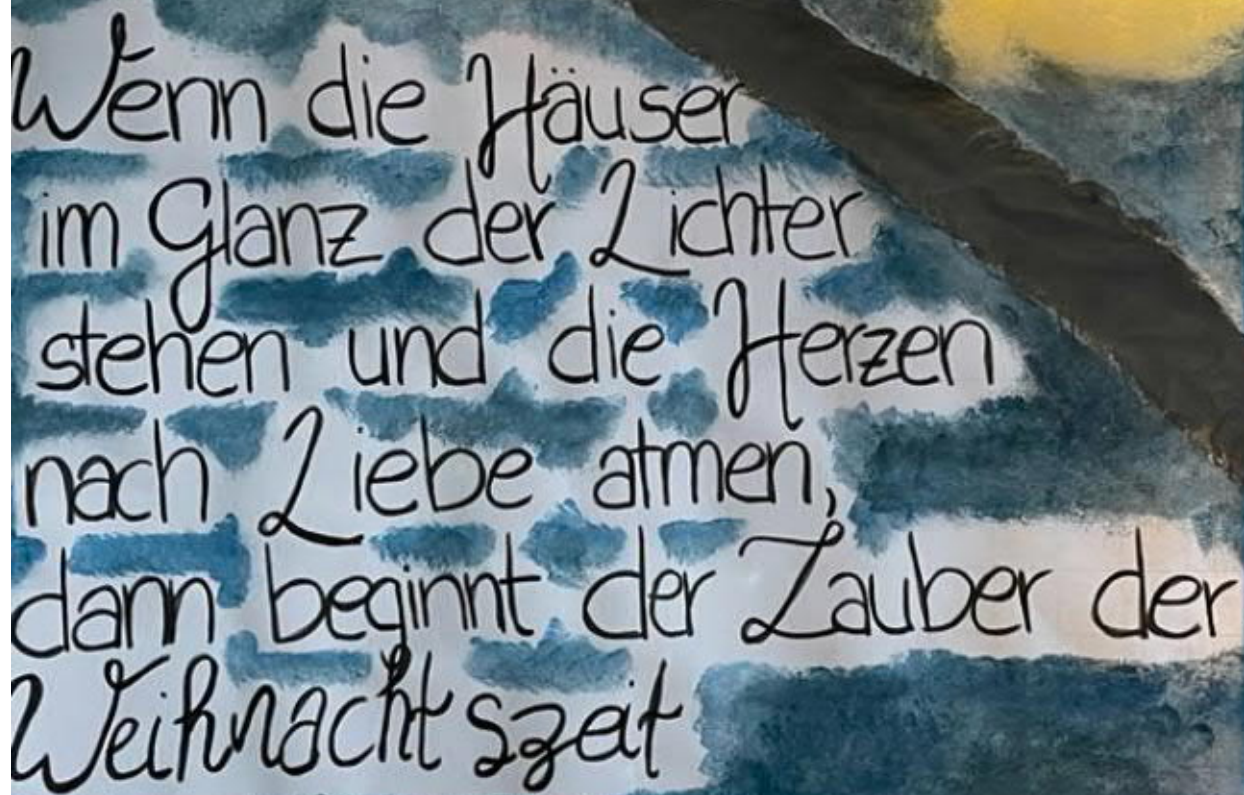 Wenn die Häuser
im Glanz der Lichter
stehen und die Herzen
nach Liebe atmen,
dann beginnt der Zauber der
Weihnachtszeit